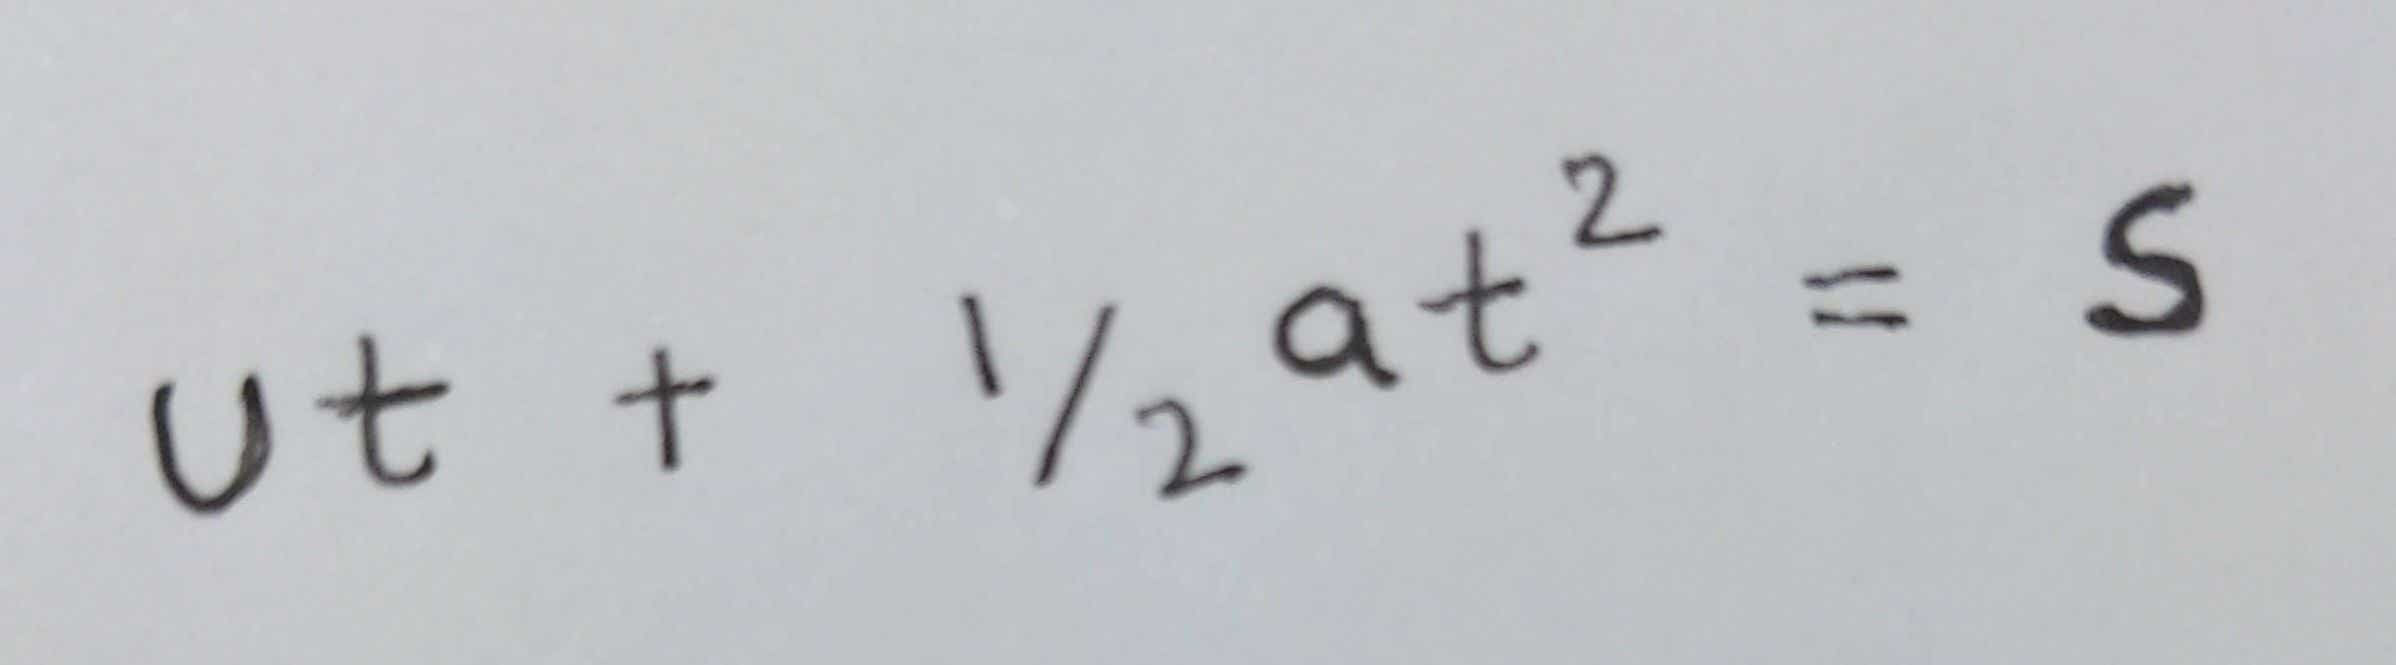 ut + 1/2 at² = s